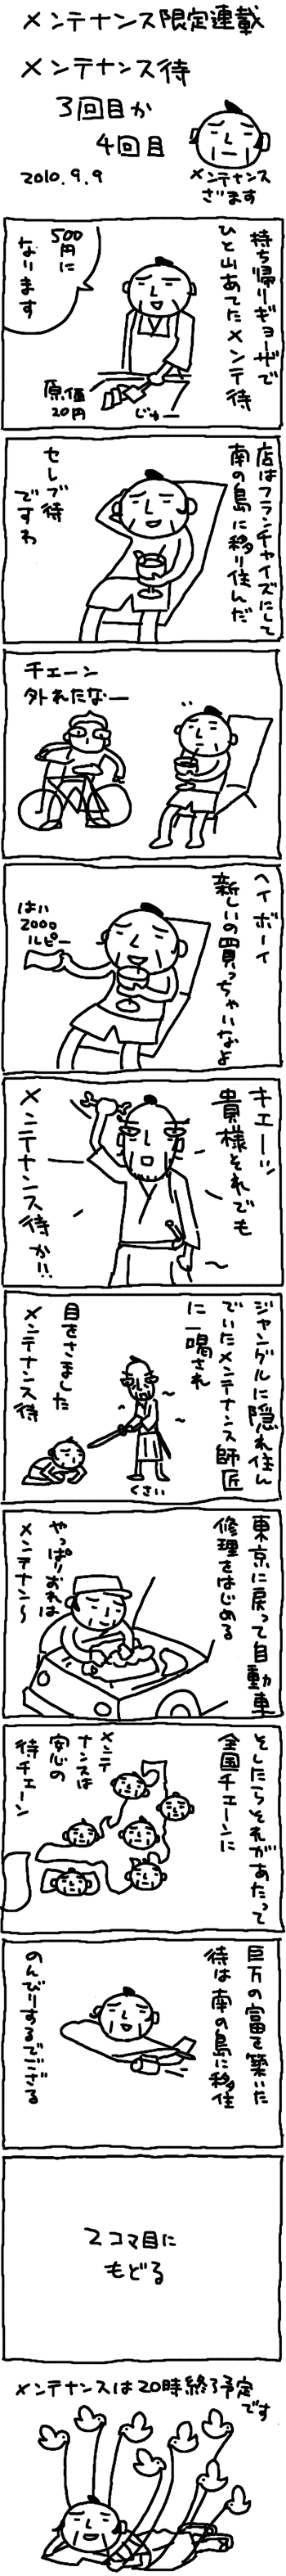 メンテナンス限定連載
メンテナンス待
3回目か
4回目
2010.9.9
メンテナンス
ざます
持ち帰りギョーザで
ひと山あてたメンテ待
500
円に
なります
原価
20円
じゅー
店はフランチャイズにして
南の島に移り住んだ
セレブ待
ですわ
チェーン
外れたなー
ヘイボーイ
新しいの買っちゃいなよ
はい
2000
ルピー
キエーッ
貴様それでも
メンテナンス待か!!
ジャングルに隠れ住ん
でいたメンテナンス師匠
に一喝され
目をさました
メンテナンス待
くさい
東京に戻って自動車
修理をはじめる
やっぱりおれは
メンテナン〜
そしたらそれがあたって
全国チェーンに
メンテ
ナンスは
安心の
待チェーン
巨万の富を築いた
待は南の島に移住
のんびりするでござる
2コマ目に
もどる
メンテナンスは20時終了予定
です